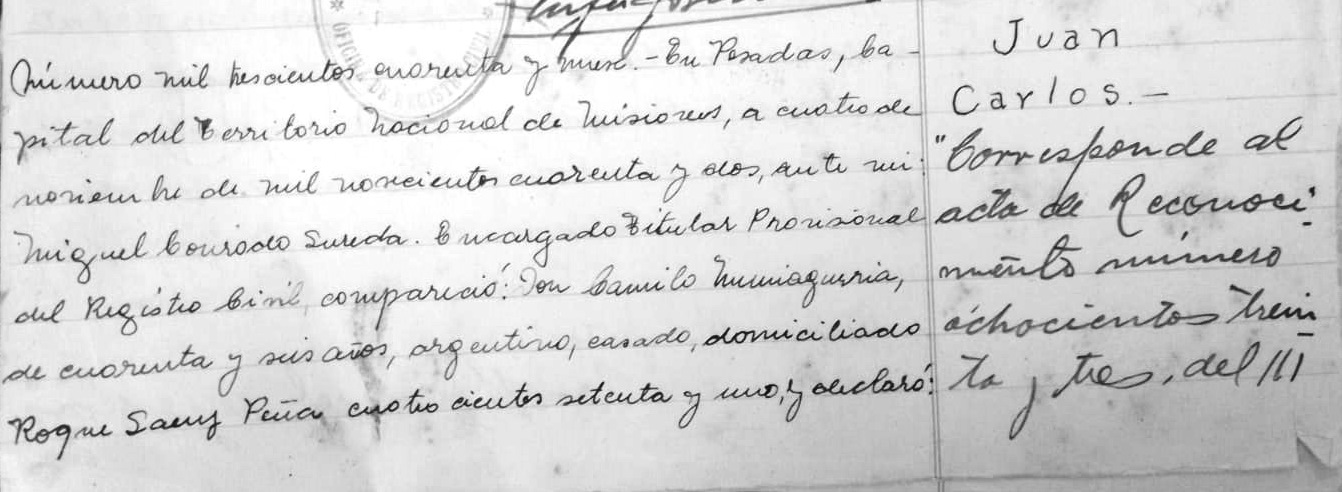 Número mil trescientos cuarenta y nueve.- En Posadas, Ca-
pital del Territorio Nacional de Misiones, a cuatro de
noviembre de mil novecientos cuarenta y dos, ante mi:
Miguel Conrado Sureda. Encargado Titular Provisional
del Registro Civil, compareció: Don Camilo
de cuarenta y seis años, argentino, casado, domiciliado
Roque Saenz Peña cuatrocientos setenta y uno, y declaró:
Juan
Carlos.-
"Corresponde al
acta de Reconoci-
miento número
ochocientos trein-
ta y tres, del III